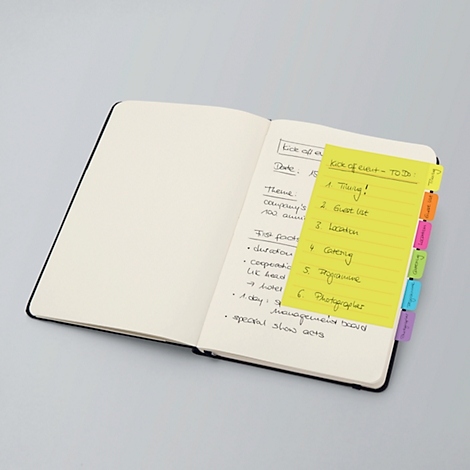 Kick off eve
Date: 15
Theme:
company's
100 anni
First facts
• duration
• cooperatio
UK board
→ hotel
• 1 day: sp
management board
• special show acts
Kick off event - TO DO:
1. Timing!
2. Guest list
3. Location
4. Catering
5. Programme
6. Photographer